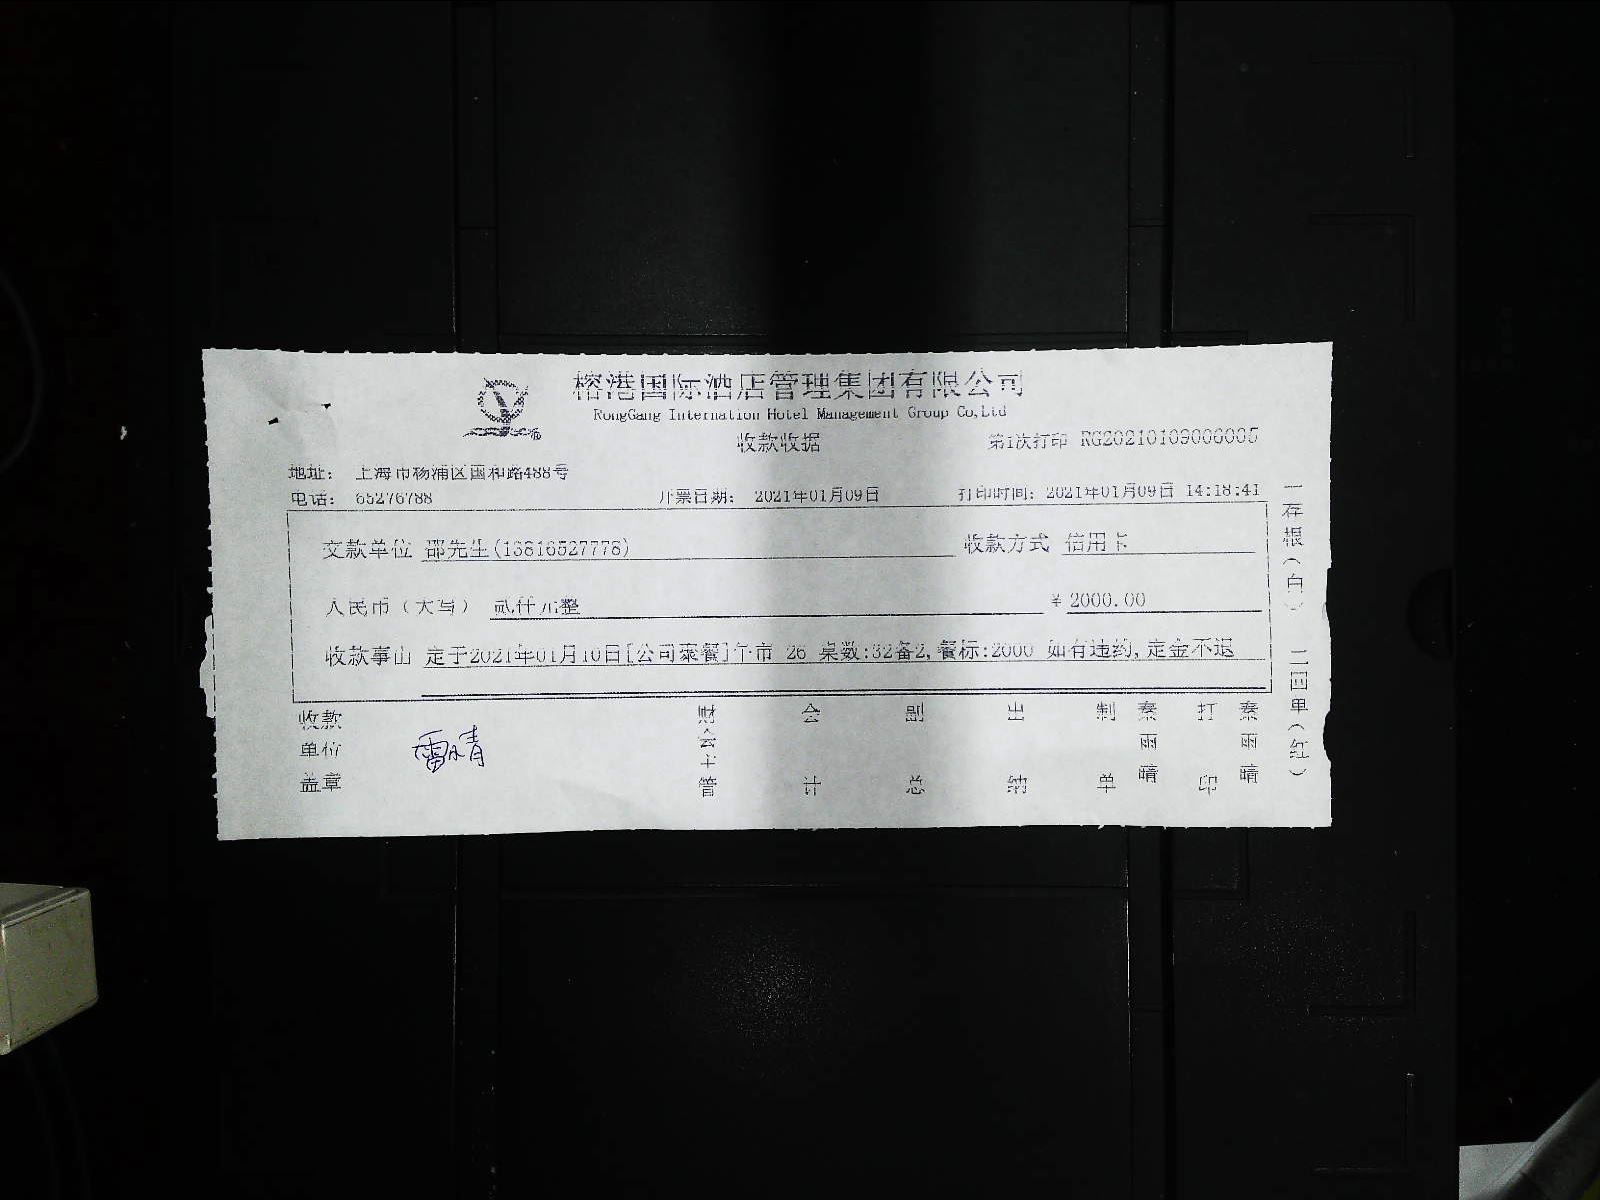 榕港国际酒店管理集团有限公司
RongGang Internation Hotel Management Group Co,Ltd
收款收据
第1次打印 RG20210109006005
地址： 上海市杨浦区国和路488号
电话： 65276788 开票日期： 2021年01月09日 打印时间：2021年01月09日 14:18:41
交款单位 邵先生(13816527778) 收款方式 信用卡
人民币（大写） 贰仟元整 ¥ 2000.00
收款事由 定于2021年01月10日[公司聚餐]午市 26 桌数:32备2,餐标:2000 如有违约,定金不退
收款单位盖章 财会主管 会计 副总 出纳 制单 秦雨晴 打印 秦雨晴
一存根（白） 二回单（红）